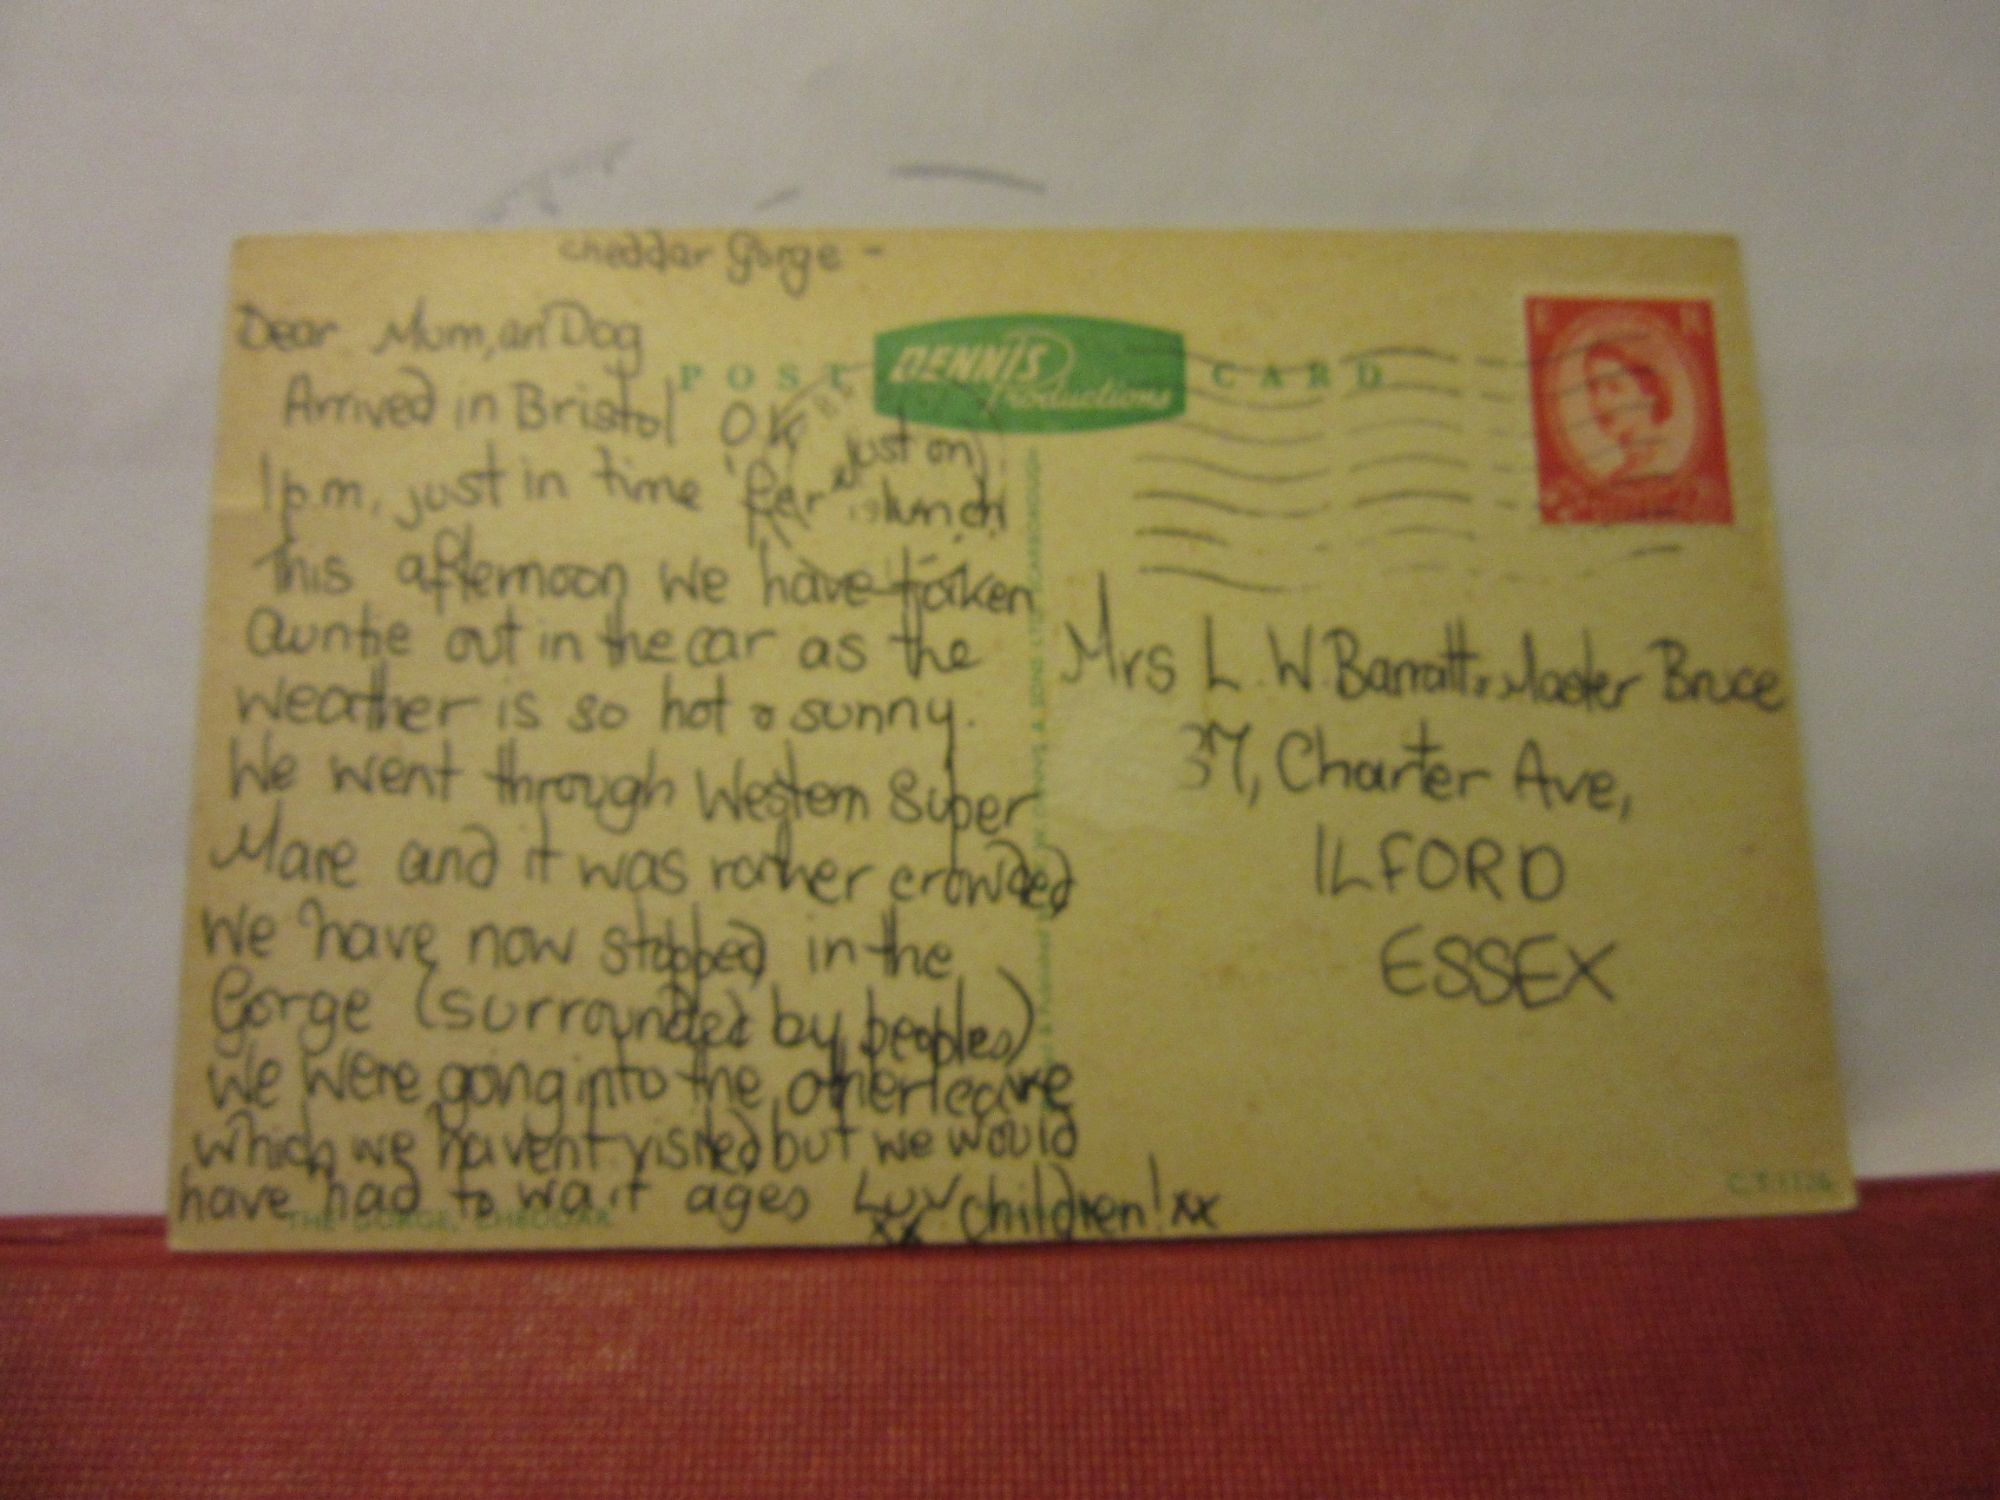 cheddar Gorge -
Dear Mum, an Dog
Arrived in Bristol OK just on
1p.m, just in time fer lunch
this afternoon we have taken
auntie out in the car as the
weather is so hot & sunny.
We went through Western Super
Mare and it was rather crowded
we have now stopped in the
Gorge (surrounded by peoples)
We were going into the other cave
which we havent visited but we would
have had to wait ages Luv children! xx
xx
POST CARD
DENNIS
Productions
E R
Mrs L. W. Barratt & Master Bruce
37, Charter Ave,
ILFORD
ESSEX
THE GORGE, CHEDDAR